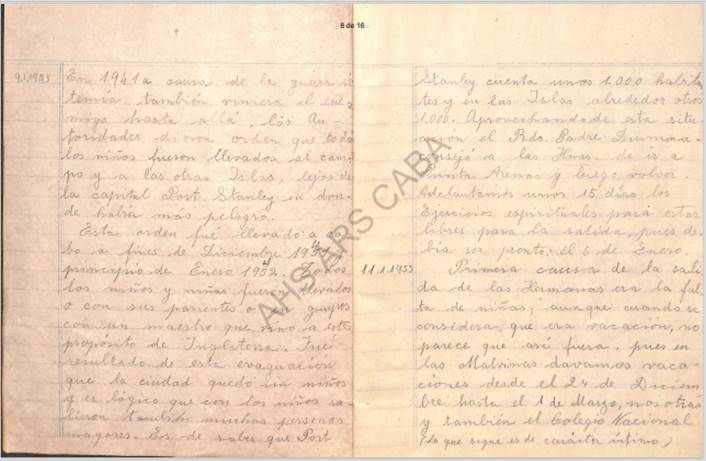 8 de 16
9.1.1953
En 1941 a causa de la guerra se
temía también viniera el ene-
migo hasta allá, las Au-
toridades dieron orden que todos
los niños fueron llevados al cam-
po y a las otras Islas, lejos de
la capital Port Stanley en don-
de había más peligro.
Esta orden fué llevado a ca-
bo a fines de Diciembre 1941
principio de Enero 1942. Todos
los niños y niñas fueron llevados
o con sus parientes o en grupos
con un maestro que vino a este
propósito de Inglaterra. Fué
resultado de esta evacuación
que la ciudad quedó sin niños
y es lógico que con los niños sa-
lieron también muchas personas
mayores. Es de saber que Port
Stanley cuenta unos 1.000 habitan-
tes y en las Islas alrededor otros
1.000. Aprovechando de esta situ-
ación el Rdo. Padre
aconsejó a las Hnas. de ir a
Punta Arenas y luego volver
Adelantamos unos 15 días los
Ejercicios espirituales para estar
libres para la salida, pues de-
bía ser pronto, el 6 de Enero.
11.1.1953
Primera causa de la sali-
da de las Hermanas era la fal-
ta de niñas; aunque cuando se
considera, que era vacación, no
parece que así fuera, pues en
las Malvinas davamos vaca-
ciones desde el 24 de Diciem-
bre hasta el 1 de Marzo, nosotras
y también el Colegio Nacional
(Lo que sigue es de carácter íntimo)
AHS ARS CABA